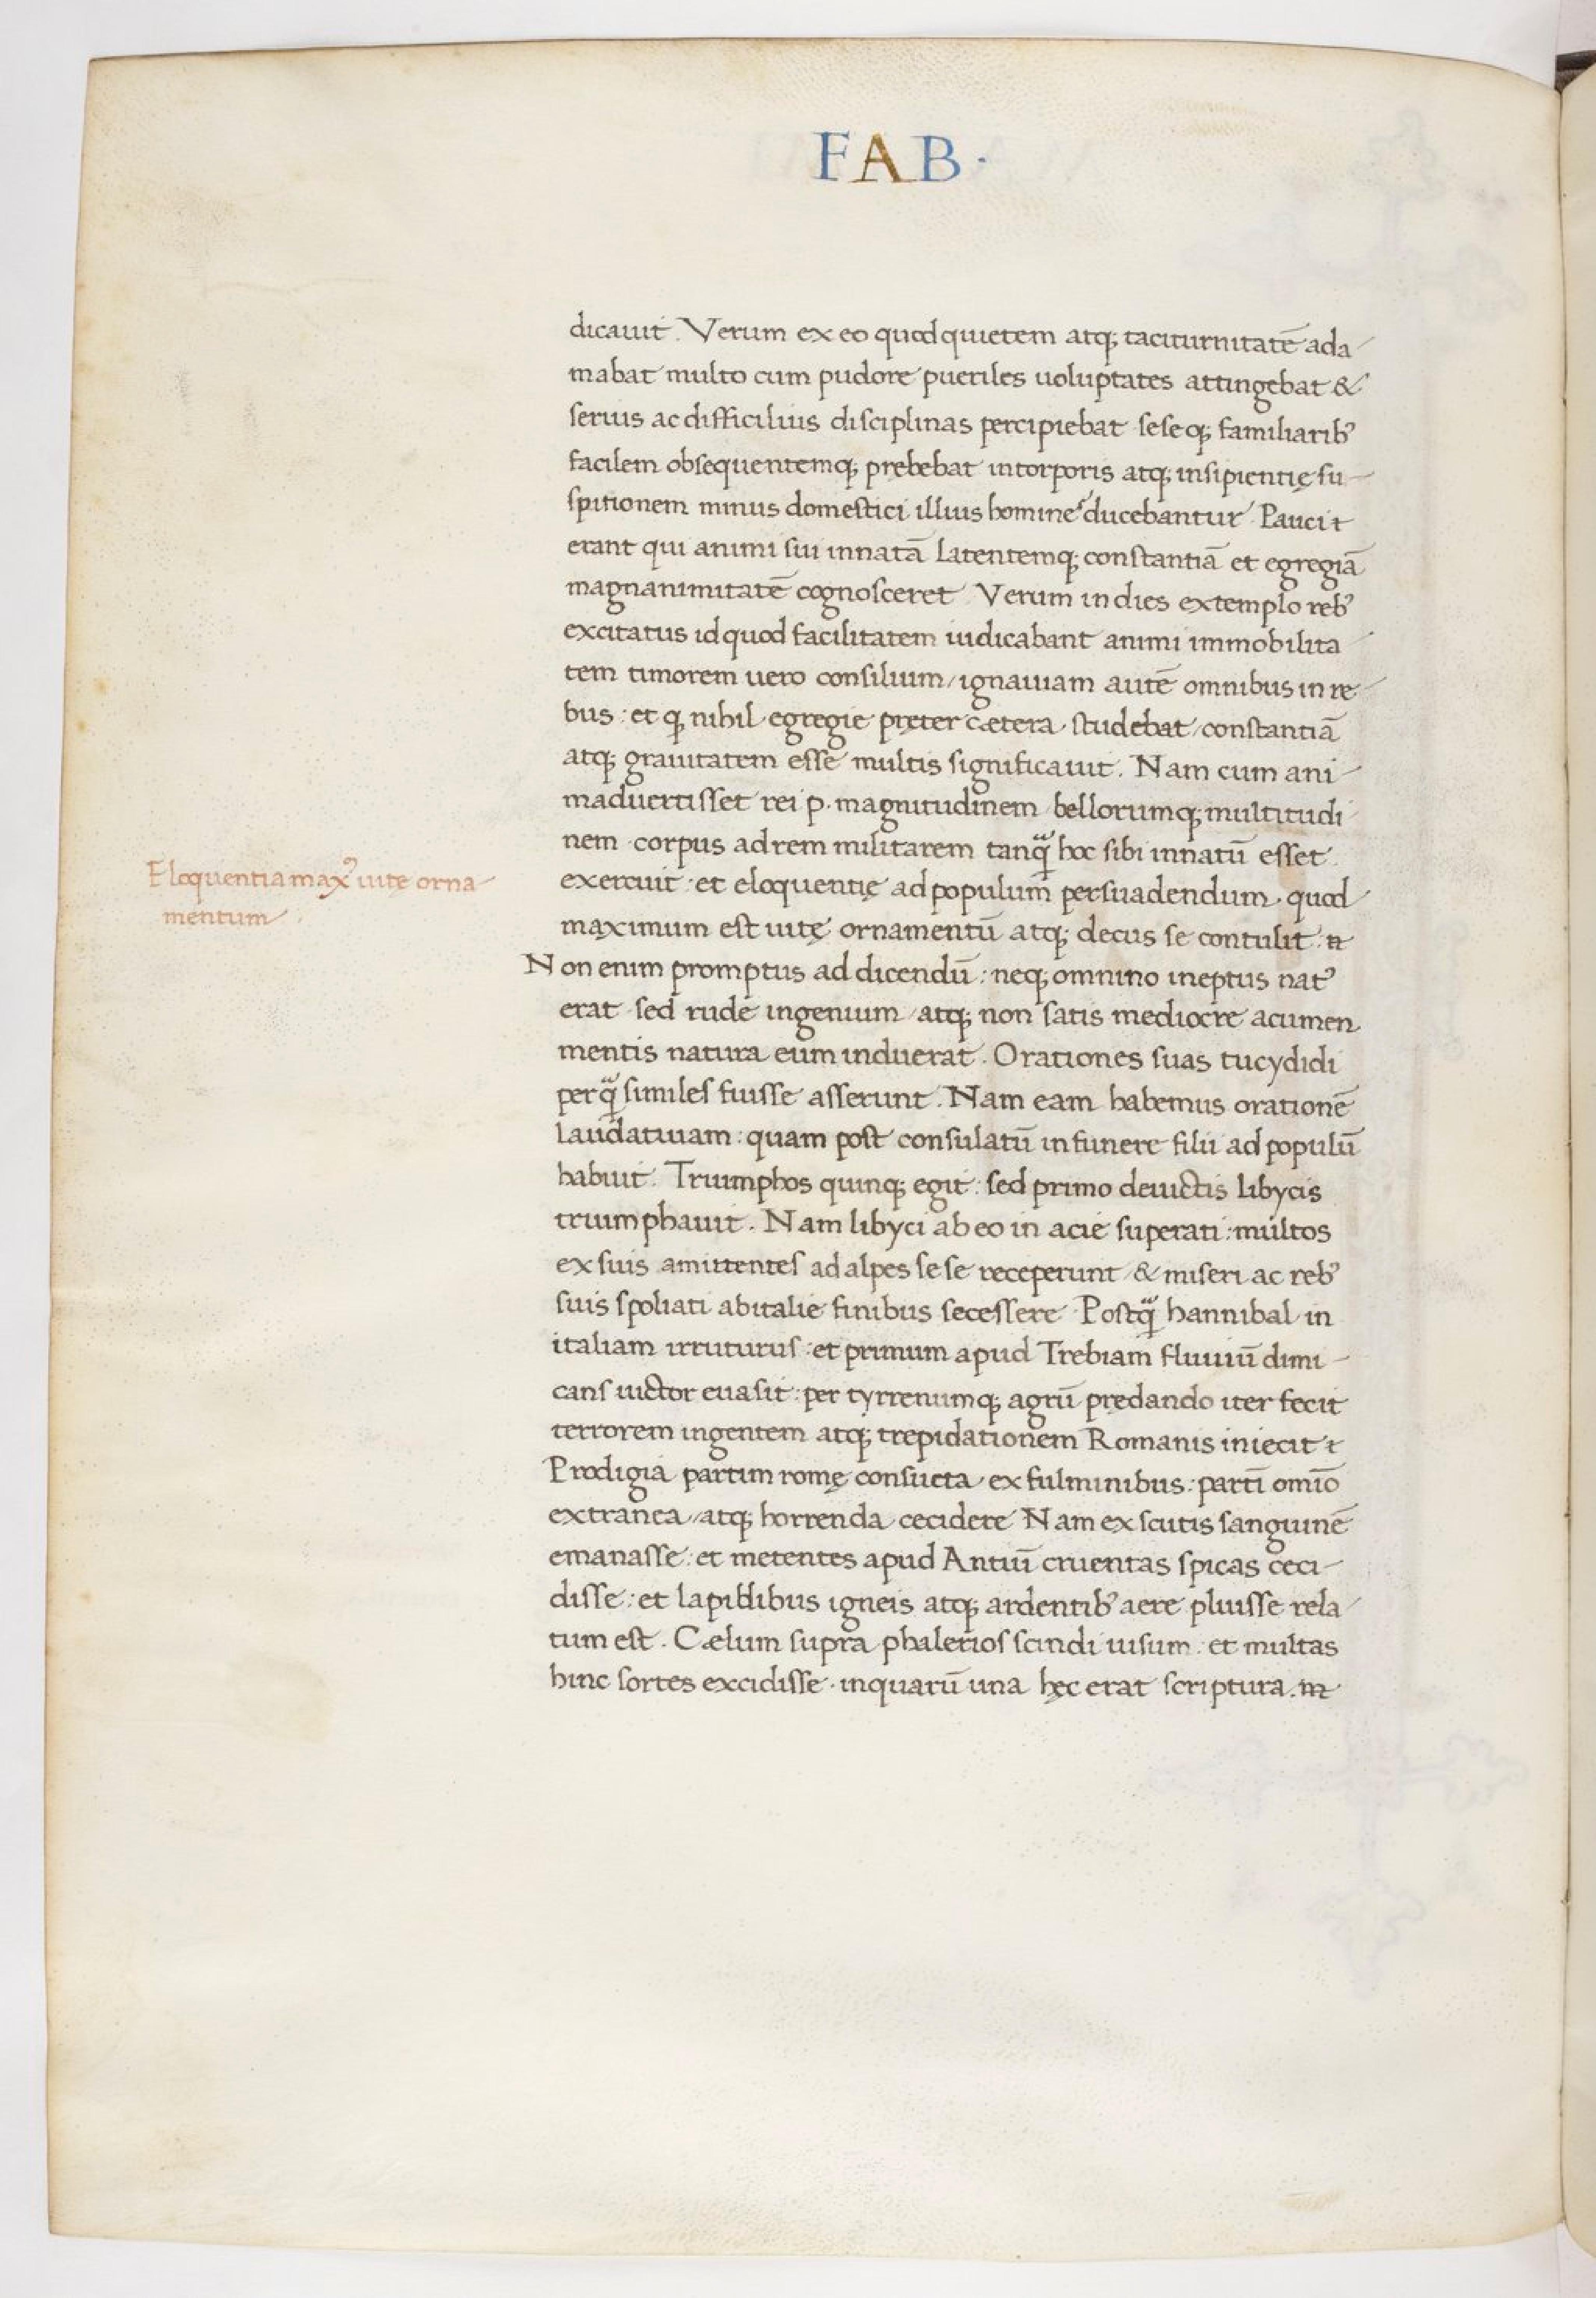 FAB·
dicauit. Verum ex eo quod quietem atq; taciturnitatē ada-
mabat multo cum pudore pueriles uoluptates attingebat &
serius ac difficilius disciplinas percipiebat seseq; familiarib⁹
facilem obsequentemq; prębebat in torporis atq; insipientię su-
spitionem minus domestici illius homines ducebantur. Pauci
erant qui animi sui innatā latentemq; constantiā et egregiā
magnanimitatē cognosceret. Verum in dies extemplo reb⁹
excitatus id quod facilitatem iudicabant animi immobilita-
tem timorem uero consilium / ignauiam autē omnibus in re-
bus: et ꝙ nihil egregie pręter cætera studebat / constantiā
atq; grauitatem esse multis significauit. Nam cum ani-
maduertisset rei p. magnitudinem bellorumq; multitudi-
nem corpus ad rem militarem tanq̃ hoc sibi innatū esset
exercuit: et eloquentię ad populum persuadendum quod
maximum est uitę ornamentū atq; decus se contulit:
Eloquentia max⁹ uite orna-
mentum
Non enim promptus ad dicendū: neq; omnino ineptus nat⁹
erat sed rude ingenium atq; non satis mediocre acumen
mentis natura eum induerat. Orationes suas tucydidi
perq̃ similes fuisse asserunt. Nam eam habemus orationē
laudatiuam: quam post consulatū in funere filii ad populū
habuit. Triumphos quinq; egit: sed primo deuictis libycis
triumphauit. Nam libyci ab eo in acie superati: multos
ex suis amittentes ad alpes sese receperunt & miseri ac reb⁹
suis spoliati ab italie finibus secessere. Postq̃ hannibal in
italiam irruturus: et primum apud Trebiam fluuiū dimi-
cans uictor euasit: per tyrrenumq; agrū prędando iter fecit
terrorem ingentem atq; trepidationem Romanis iniecit
Prodigia partim romę consueta ex fulminibus: partī omīo
extranea / atq; horrenda cecidere Nam ex scutis sanguinē
emanasse: et metentes apud Antiū cruentas spicas ceci-
disse: et lapidibus igneis atq; ardentib⁹ aere pluisse rela-
tum est. Cælum supra phalerios scindi uisum: et multas
hinc sortes excidisse in quarū una hęc erat scriptura.